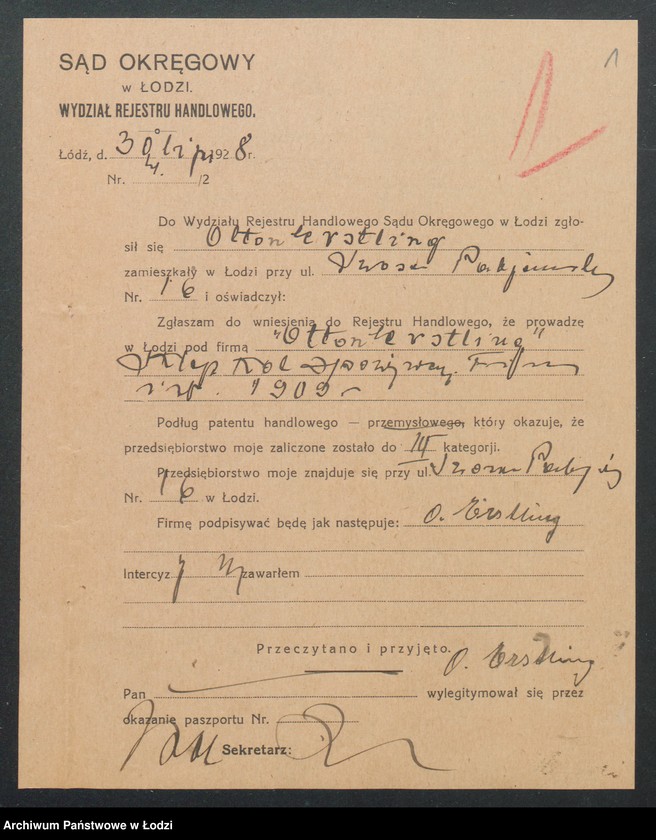 1
SĄD OKRĘGOWY
W ŁODZI.
WYDZIAŁ REJESTRU HANDLOWEGO.
Łódź, d. 30 lip 1928 r.
Nr. /2
Do Wydziału Rejestru Handlowego Sądu Okręgowego w Łodzi zgło-
sił się Otton Erstling
zamieszkały w Łodzi przy ul.
Nr. 16 i oświadczył:
Zgłaszam do wniesienia do Rejestru Handlowego, że prowadzę
w Łodzi pod firmą "Otton Erstling"
Sklep
1909
Podług patentu handlowego — przemysłowego, który okazuje, że
przedsiębiorstwo moje zaliczone zostało do III kategorji.
Przedsiębiorstwo moje znajduje się przy ul.
Nr. 16 w Łodzi.
Firmę podpisywać będę jak następuje: O. Erstling
Intercyzy zawarłem
Przeczytano i przyjęto. O. Erstling
Pan wylegitymował się przez
okazanie paszportu Nr.
Sekretarz:
Archiwum Państwowe w Łodzi